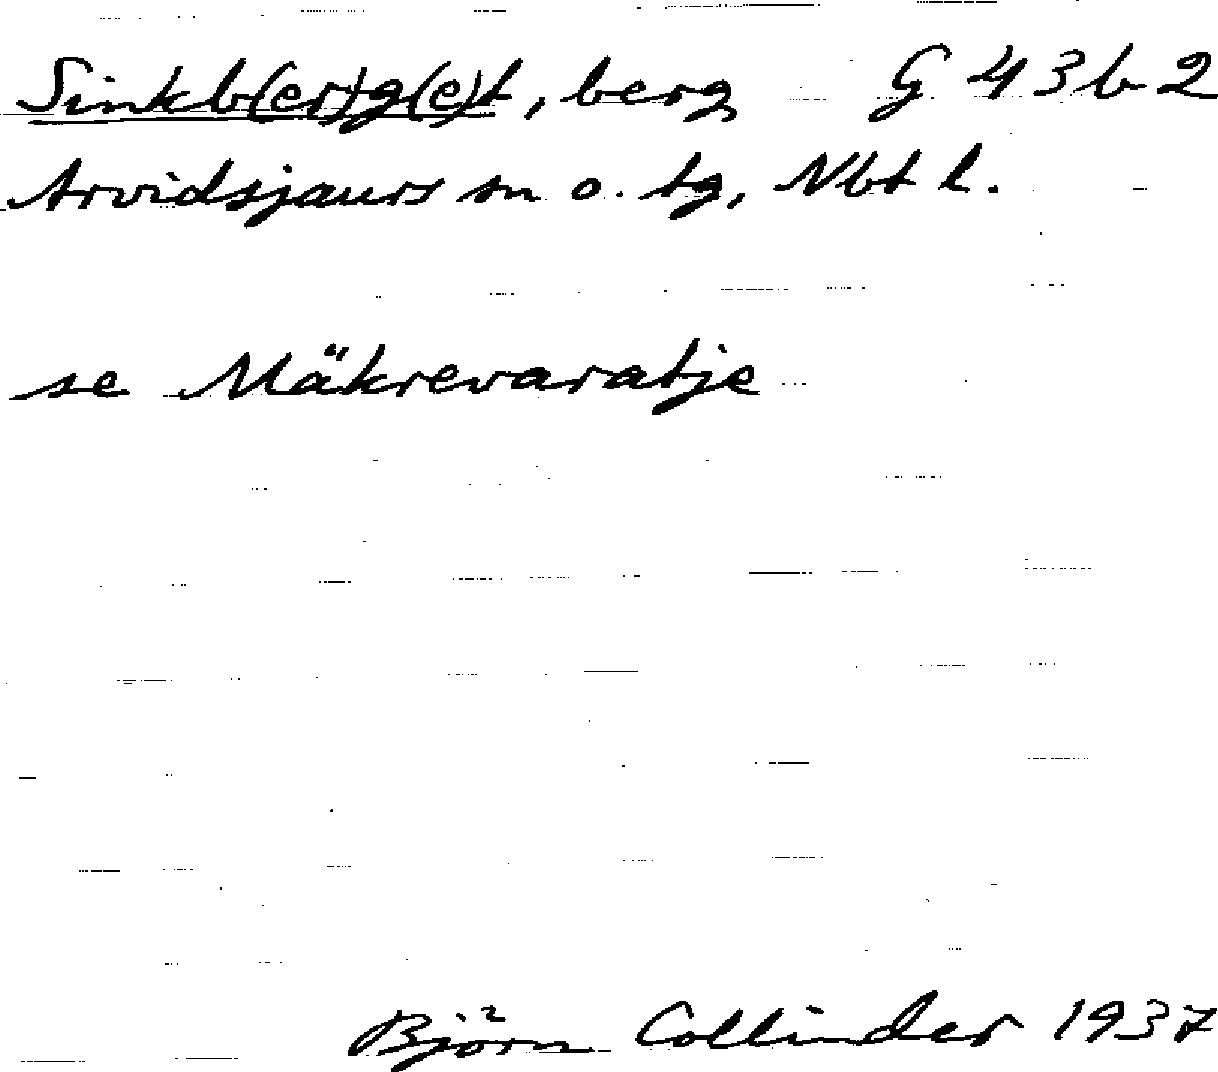 Sinkb(er)g(e)t, berg G 43 b 2
Arvidsjaurs sn o. tg, Nbt l.
se Mäkrevaratje
Björn Collinder 1937